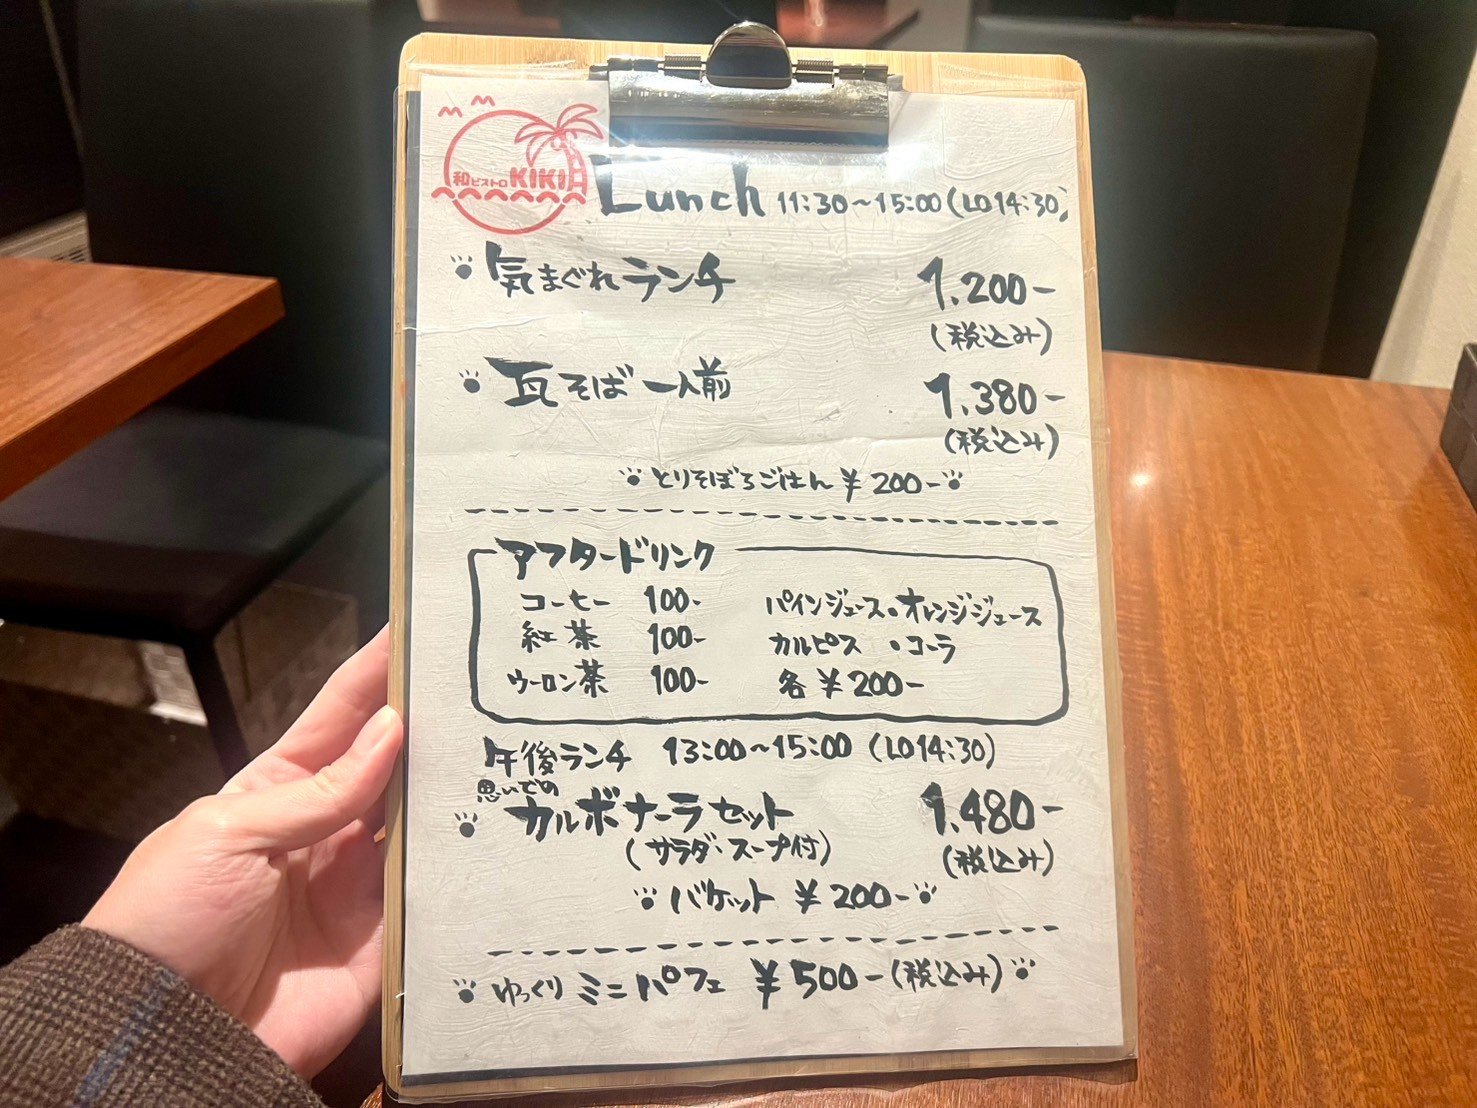 和ビストロ KIKI
Lunch 11:30〜15:00(LO14:30)
気まぐれランチ 1,200-
(税込み)
瓦そば 一人前 1,380-
(税込み)
とりそぼろごはん ¥200-
アフタードリンク
コーヒー 100-
紅茶 100-
ウーロン茶 100-
パインジュース・オレンジジュース
カルピス ・コーラ
各 ¥200-
午後ランチ 13:00〜15:00 (LO14:30)
思いでの
カルボナーラセット 1,480-
(サラダ・スープ付) (税込み)
バケット ¥200-
ゆっくり ミニパフェ ¥500-(税込み)